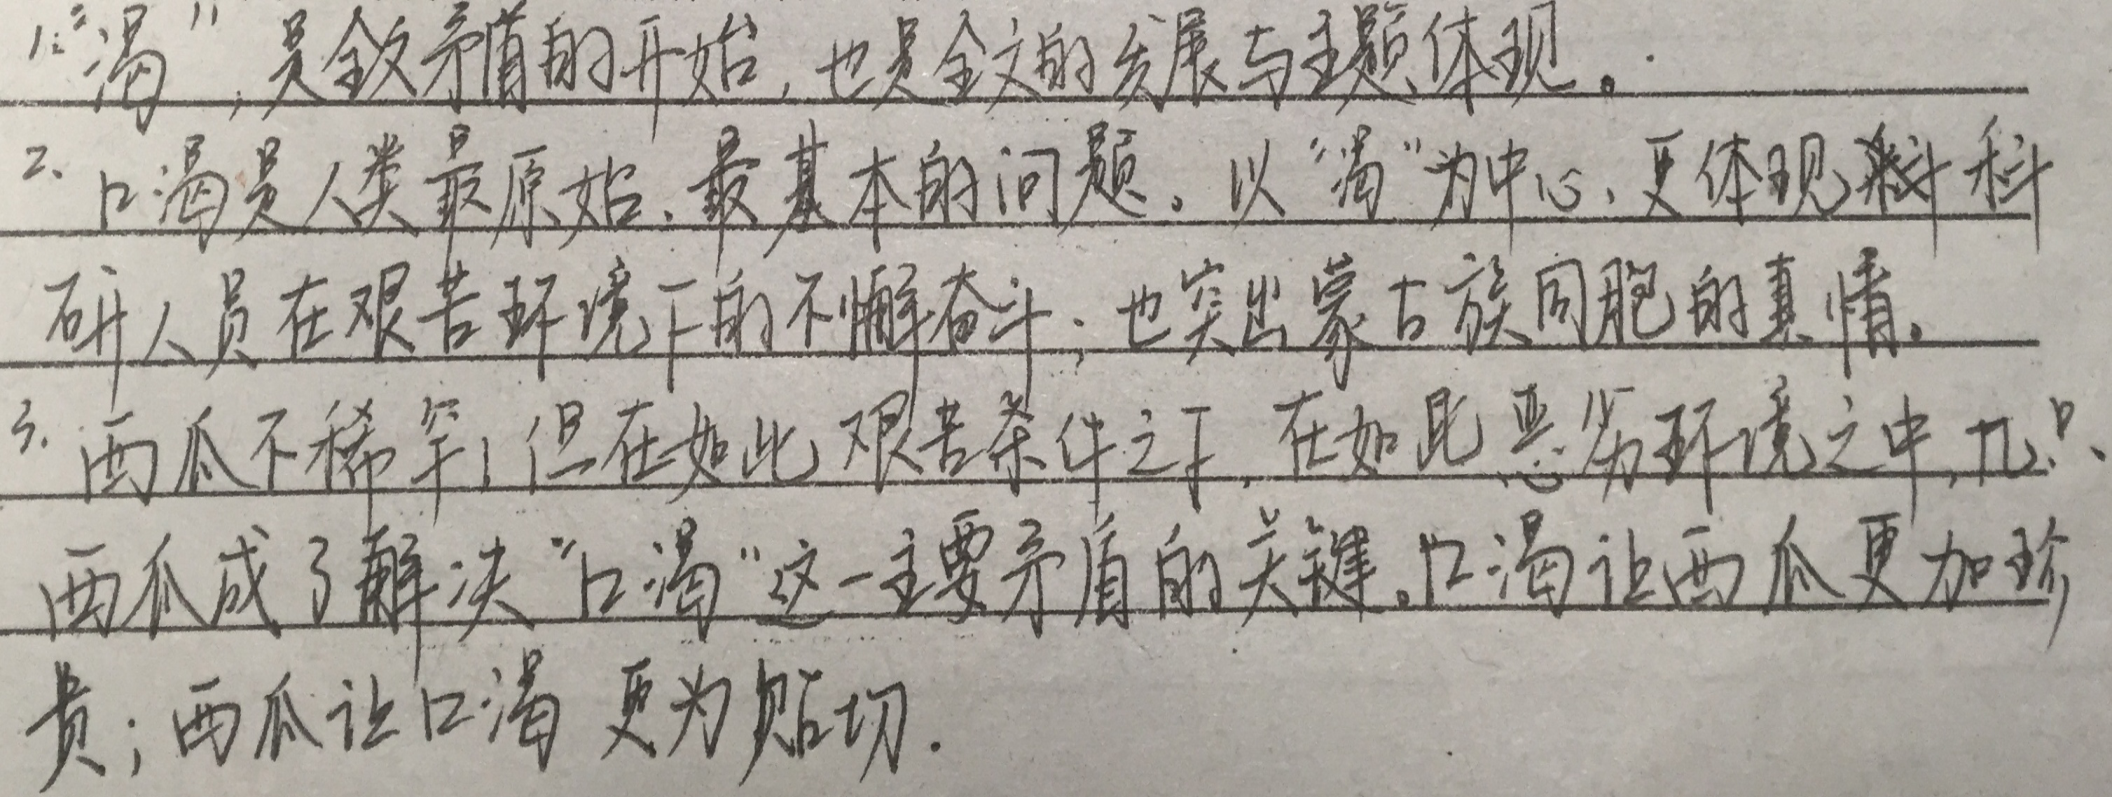 1."渴",是全文矛盾的开始,也是全文的发展与主题体现。
2.口渴是人类最原始、最基本的问题。以"渴"为中心,更体现 科
研人员在艰苦环境下的不懈奋斗;也突出蒙古族同胞的真情。
3.西瓜不稀罕,但在如此艰苦条件之下,在如此恶劣环境之中,九只
西瓜成了解决"口渴"这一主要矛盾的关键。口渴让西瓜更加珍
贵;西瓜让口渴更为贴切.